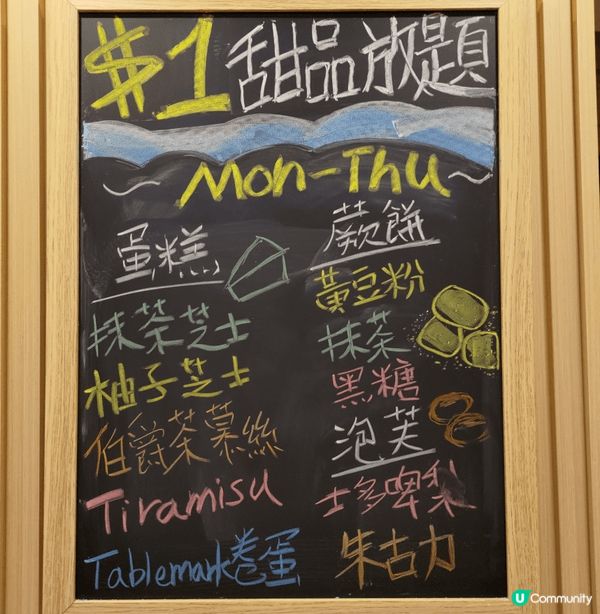 $1甜品放題
~ Mon-Thu ~
蛋糕
抹茶芝士
柚子芝士
伯爵茶慕絲
Tiramisu
Tablemark卷蛋
蕨餅
黃豆粉
抹茶
黑糖
泡芙
士多啤梨
朱古力
U Community